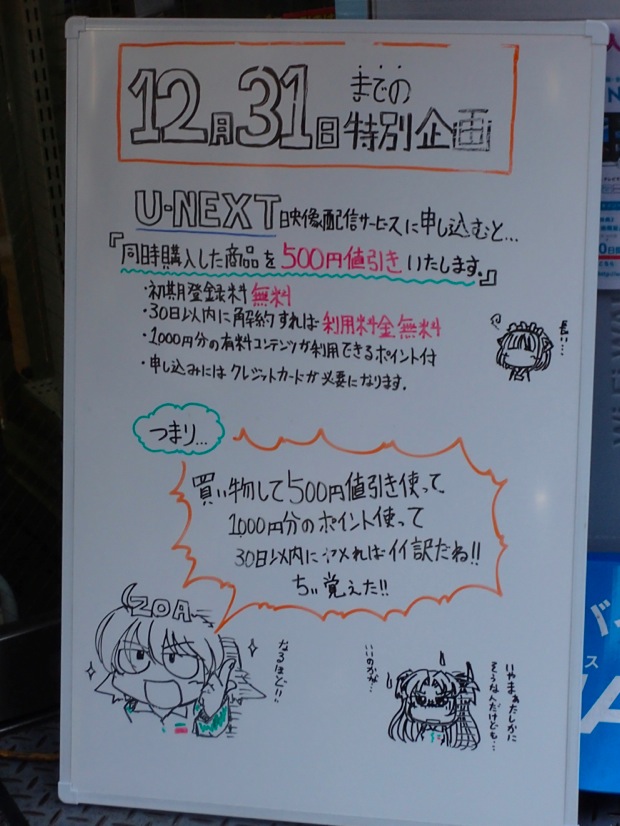 12月31日までの
特別企画
U-NEXT映像配信サービスに申し込むと…
『同時購入した商品を500円値引きいたします。』
・初期登録料無料
・30日以内に解約すれば利用料金無料
・1000円分の有料コンテンツが利用できるポイント付
・申し込みにはクレジットカードが必要になります。
長い…
つまり…
買い物して500円値引き使って
1000円分のポイント使って
30日以内にヤメればイイ訳だね!!
ちぃ覚えた!!
ZOA
なるほど!!
いやまぁたしかに
そうなんだけども…
いいのかが…